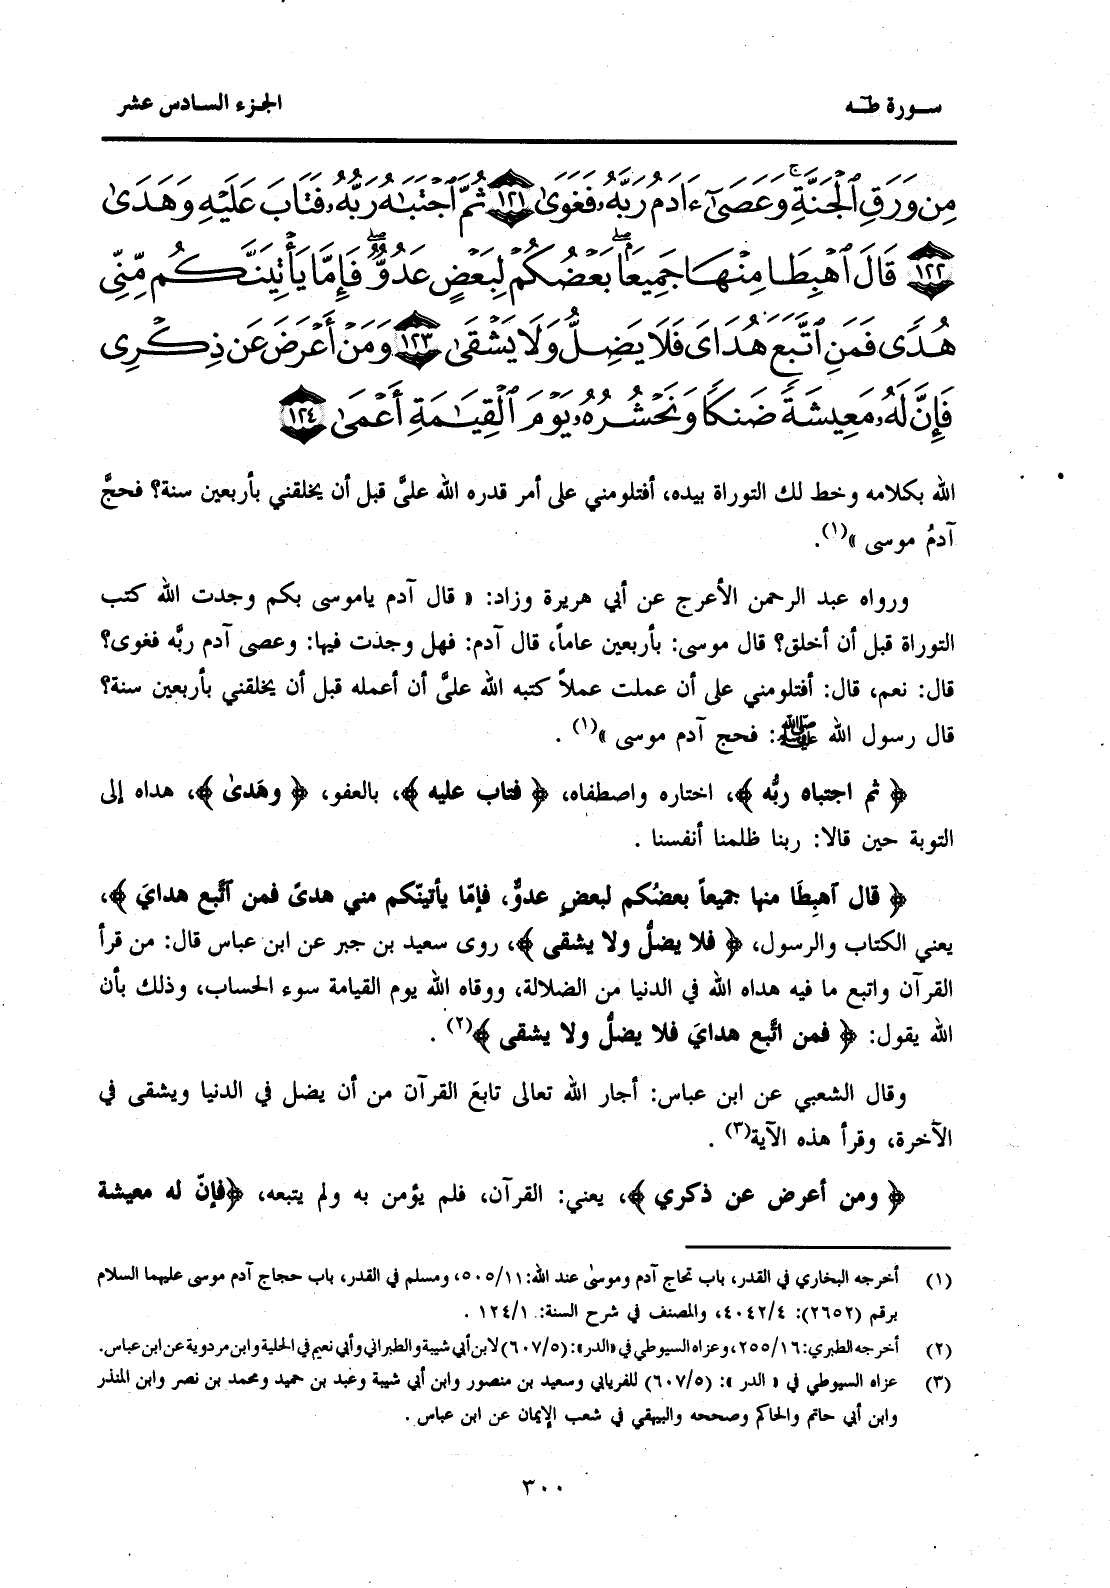 سورة طه
الجزء السادس عشر
مِن وَرَقِ ٱلْجَنَّةِ ۚ وَعَصَىٰٓ ءَادَمُ رَبَّهُۥ فَغَوَىٰ ١٢١ ثُمَّ ٱجْتَبَـٰهُ رَبُّهُۥ فَتَابَ عَلَيْهِ وَهَدَىٰ
١٢٢ قَالَ ٱهْبِطَا مِنْهَا جَمِيعًۢا ۖ بَعْضُكُمْ لِبَعْضٍ عَدُوٌّ ۖ فَإِمَّا يَأْتِيَنَّكُم مِّنِّى
هُدًى فَمَنِ ٱتَّبَعَ هُدَاىَ فَلَا يَضِلُّ وَلَا يَشْقَىٰ ١٢٣ وَمَنْ أَعْرَضَ عَن ذِكْرِى
فَإِنَّ لَهُۥ مَعِيشَةً ضَنكًا وَنَحْشُرُهُۥ يَوْمَ ٱلْقِيَـٰمَةِ أَعْمَىٰ ١٢٤
الله بكلامه وخط لك التوراة بيده، أفتلومني على أمر قدره الله عليَّ قبل أن يخلقني بأربعين سنة؟ فحجَّ
آدمُ موسى »(١).
ورواه عبد الرحمن الأعرج عن أبي هريرة وزاد: « قال آدم ياموسى بكم وجدت الله كتب
التوراة قبل أن أخلق؟ قال موسى: بأربعين عاماً، قال آدم: فهل وجدت فيها: وعصى آدم ربَّه فغوى؟
قال: نعم، قال: أفتلومني على أن عملت عملاً كتبه الله عليَّ أن أعمله قبل أن يخلقني بأربعين سنة؟
قال رسول الله ﷺ: فحج آدم موسى »(١) .
﴿ ثم اجتباه ربُّه ﴾، اختاره واصطفاه، ﴿ فتاب عليه ﴾، بالعفو، ﴿ وهَدىٰ ﴾، هداه إلى
التوبة حين قالا: ربنا ظلمنا أنفسنا .
﴿ قال آهبِطَا منها جميعاً بعضُكم لبعضٍ عدوٌّ، فإمّا يأتينّكم مني هدىً فمن آتَّبع هدايَ ﴾،
يعني الكتاب والرسول، ﴿ فلا يضلُّ ولا يشقى ﴾، روى سعيد بن جبر عن ابن عباس قال: من قرأ
القرآن واتبع ما فيه هداه الله في الدنيا من الضلالة، ووقاه الله يوم القيامة سوء الحساب، وذلك بأن
الله يقول: ﴿ فمن اتَّبع هدايَ فلا يضلُّ ولا يشقى ﴾(٢) .
وقال الشعبي عن ابن عباس: أجار الله تعالى تابعَ القرآن من أن يضل في الدنيا ويشقى في
الآخرة، وقرأ هذه الآية(٣) .
﴿ ومن أعرض عن ذكري ﴾، يعني: القرآن، فلم يؤمن به ولم يتبعه، ﴿فإنّ له معيشة
(١) أخرجه البخاري في القدر، باب تحاج آدم وموسىٰ عند الله: ٥٠٥/١١، ومسلم في القدر، باب حجاج آدم موسى عليهما السلام
برقم (٢٦٥٢): ٤٠٤٢/٤، والمصنف في شرح السنة: ١٢٤/١ .
(٢) أخرجه الطبري: ٢٥٥/١٦، وعزاه السيوطي في «الدر»: (٦٠٧/٥) لابن أبي شيبة والطبراني وأبي نعيم في الحلية وابن مردوية عن ابن عباس.
(٣) عزاه السيوطي في « الدر »: (٦٠٧/٥) للفريابي وسعيد بن منصور وابن أبي شيبة وعبد بن حميد ومحمد بن نصر وابن المنذر
وابن أبي حاتم والحاكم وصححه والبيهقي في شعب الإيمان عن ابن عباس .
٣٠٠